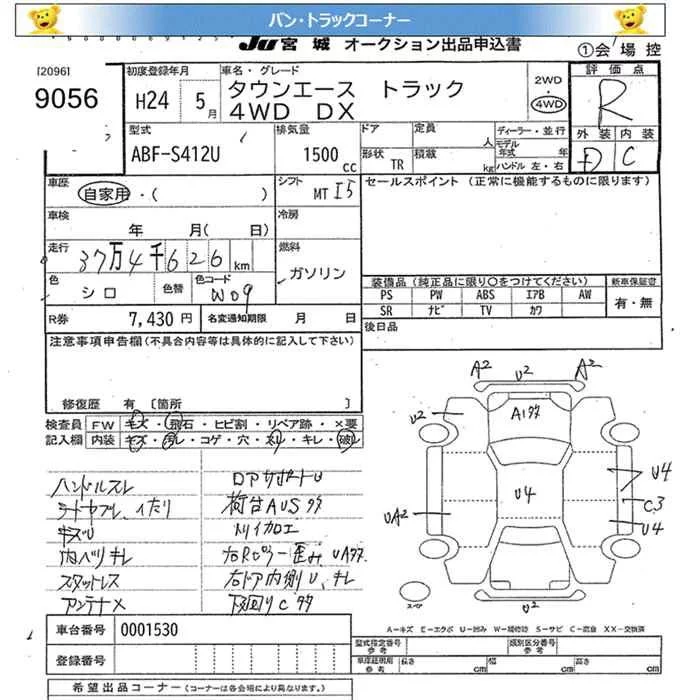 バン・トラックコーナー
JU 宮城 オークション出品申込書
①会場控
[2096]
9056
初度登録年月
H24 5月
車名・グレード
タウンエース トラック
4WD DX
2WD
・
4WD
評価点
R
外装 内装
D C
型式
ABF-S412U
排気量
1500 cc
ドア
定員 人
形状 TR
積載 kg
ディーラー・並行
モデル年式 年
ハンドル 左・右
車歴
自家用・( )
シフト
MT I5
セールスポイント (正常に機能するものに限ります)
車検
年 月( 日)
冷房
走行
37万4千626km
燃料
ガソリン
色
シロ
色替
色コード
W09
装備品 (純正品に限り○をつけてください)
新車保証書
PS PW ABS エアB AW
有・無
SR ナビ TV カワ
R券 7,430円
名変通知期限 月 日
後日品
注意事項申告欄 (不具合内容等は具体的に記入して下さい)
修復歴 有 [箇所
検査員 FW キズ・飛石・ヒビ割・リペア跡・×要
記入欄 内装 キズ・スレ・コゲ・穴・ヌリ・キレ・破レ
ハンドルスレ
ドアサポートU
荷台AUSサビ
キズU
内ベリキレ
スタットレス
右ドア内側U、キレ
アンテナX
下回りCサビ
A2
U2
A2
U2
U4
U4
UA2
C3
U4
U2
スペア
A-キズ E-エクボ U-凹み W-補修跡 S-サビ C-腐食 XX-交換済
車台番号 0001530
型式指定番号 参考
類別区分番号 参考
登録番号
車庫証明用 参考
長さ cm
幅 cm
高さ cm
希望出品コーナー (コーナーは各会場により異なります。)